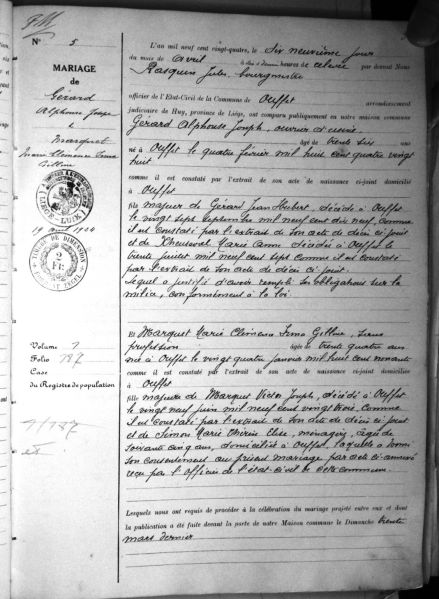 N° 5
MARIAGE
de
Gérard
Alphonse Joseph
&
Marquet
Marie Clémence Irma
L'an mil neuf cent vingt-quatre, le dix neuvième jour
du mois de avril heures de relevée par devant Nous
Rasquin Jules, bourgmestre
officier de l'Etat-Civil de la Commune de Ouffet arrondissement
judiciaire de Huy, province de Liège, est comparu publiquement en notre maison commune
Gérard Alphonse Joseph, ouvrier d'usine,
âgé de trente six ans
né à Ouffet le quatre février mil huit cent quatre vingt
huit
comme il est constaté par l'extrait de son acte de naissance ci-joint domicilié
à Ouffet
fils majeur de Gérard Jean Hubert, décédé à Ouffet
le vingt sept septembre mil neuf cent dix neuf, comme
il est constaté par l'extrait de son acte de décès ci-joint
et de Marie Anne décédée à Ouffet le
trente juillet mil neuf cent sept comme il est constaté
par l'extrait de son acte de décès ci joint.
Lequel a justifié d'avoir rempli ses obligations sur la
milice, conformément à la loi
LIEGE LUIK
19 avril 1924
TIMBRE DE DIMENSION
2 FR
Volume 7
Folio 187
Case
du Registre de population
7/187
Et Marquet Marie Clémence Irma, sans
profession âgée de trente quatre ans
née à Ouffet le vingt quatre janvier mil huit cent nonante
comme il est constaté par l'extrait de son acte de naissance ci-joint domiciliée
à Ouffet
fille majeure de Marquet Victor Joseph, décédé à Ouffet
le vingt neuf juin mil neuf cent vingt trois, comme
il est constaté par l'extrait de son acte de décès ci joint
et de Simon Marie Thérèse Elise, ménagère, âgée de
soixante cinq ans, domiciliée à Ouffet, laquelle a donné
son consentement au présent mariage par acte ci-annexé
reçu par l'officier de l'état-civil de cette commune.
Lesquels nous ont requis de procéder à la célébration du mariage projeté entre eux et dont
la publication a été faite devant la porte de notre Maison commune le Dimanche trente
mars dernier